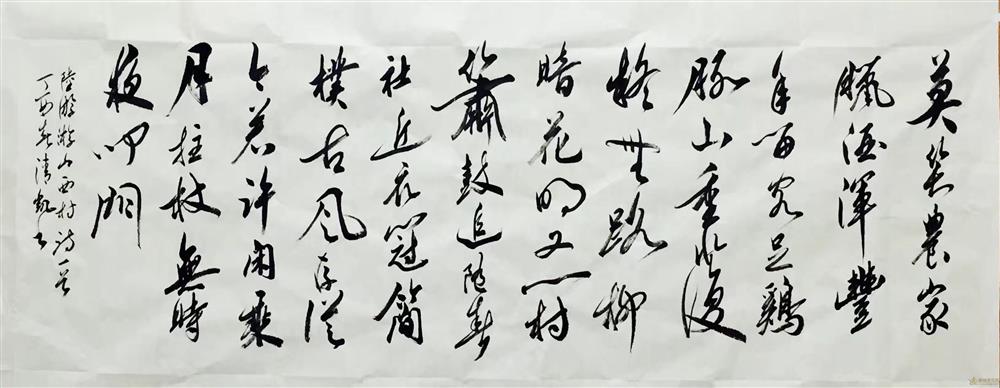 莫笑農家
臘酒渾豐
年留客足鷄
豚山重水復
疑無路柳
暗花明又一村
簫鼓追隨春
社近衣冠簡
樸古風存從
今若許閑乘
月拄杖無時
夜叩門
陸游游山西村詩一首
丁酉春清凱書